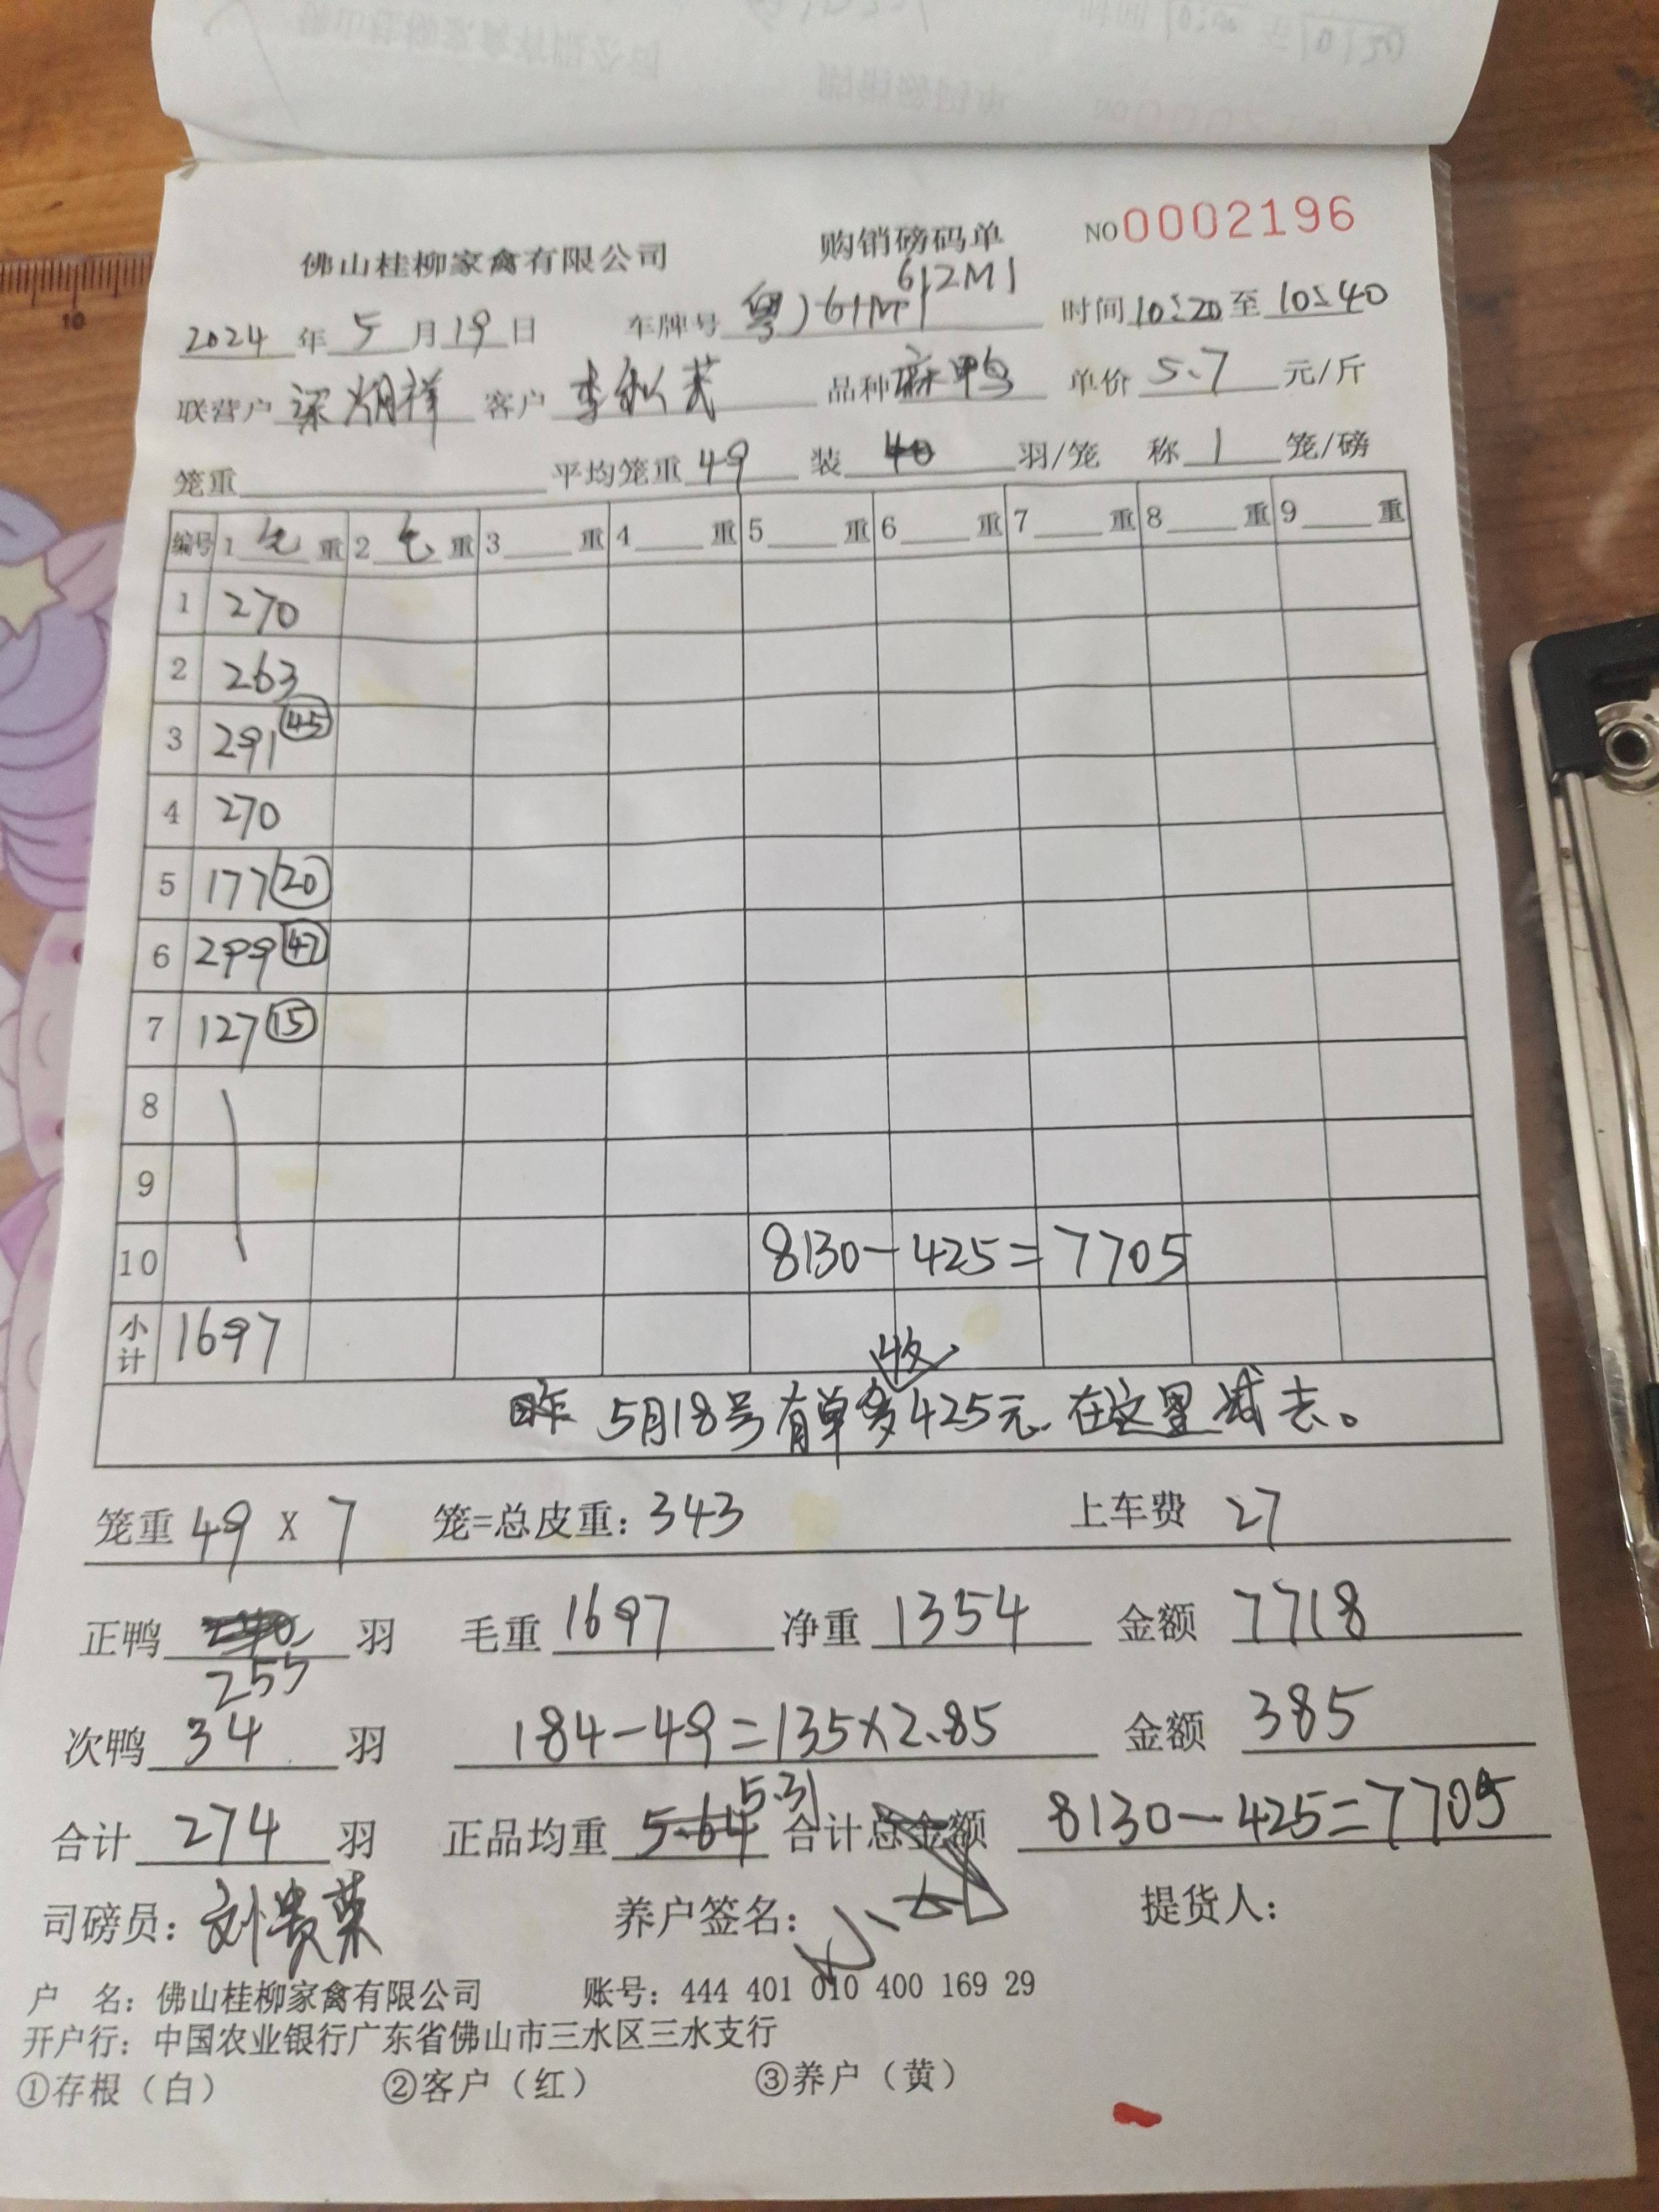 佛山桂柳家禽有限公司 购销磅码单 NO 0002196
2024 年 5 月 19 日 车牌号 粤J 612M1 时间 10:20 至 10:40
联营户 梁炳祥 客户 李 品种 麻鸭 单价 5.7 元/斤
笼重 平均笼重 49 装 40 羽/笼 称 1 笼/磅
编号 1 毛 重 2 毛 重 3 重 4 重 5 重 6 重 7 重 8 重 9 重
1 270
2 263
3 291 45
4 270
5 177 20
6 299 47
7 127 15
8
9
10 8130-425=7705
小计 1697
昨 5月18号有单多收425元.在这里减去。
笼重 49 X 7 笼=总皮重: 343 上车费 27
正鸭 255 羽 毛重 1697 净重 1354 金额 7718
次鸭 34 羽 184-49=135×2.85 金额 385
合计 274 羽 正品均重 5.64 5.31 合计总金额 8130-425=7705
司磅员: 刘贵荣 养户签名: 提货人:
户 名: 佛山桂柳家禽有限公司 账号: 444 401 010 400 169 29
开户行: 中国农业银行广东省佛山市三水区三水支行
①存根（白） ②客户（红） ③养户（黄）